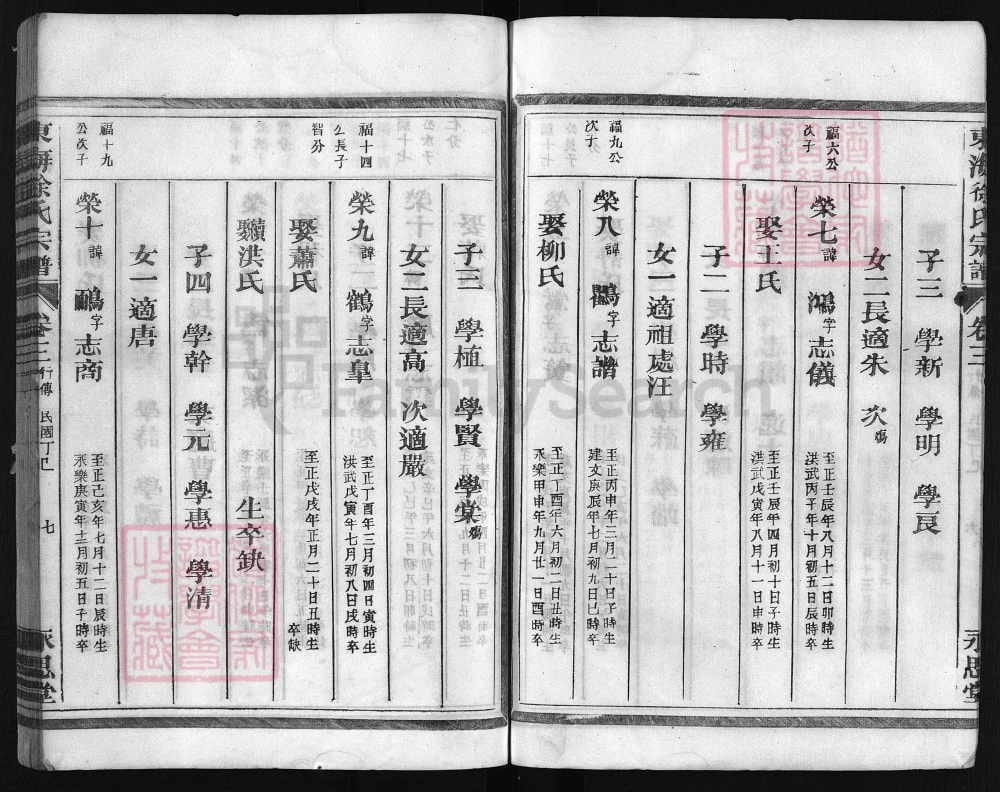 東海徐氏宗譜 卷三 永思堂
子三 學新 學明 學良
女二長適朱 次殤
福六公次子
榮七諱鴻字志儀 至正壬辰年八月十二日卯時生 洪武丙子年十月初五日辰時卒
娶王氏 至正壬辰年四月初十日子時生 洪武戊寅年八月十一日申時卒
子二 學時 學雍
女一適祖處汪
福九公次子
榮八諱鷗字志譜 至正丙申年三月二十日子時生 建文庚辰年七月初九日巳時卒
娶柳氏 至正丁酉年六月初二日丑時生 永樂甲申年九月廿一日酉時卒
子三 學植 學賢 學棠殤
女二長適高 次適嚴
福十四公長子
榮九諱鶴字志皐 至正丁酉年三月初四日寅時生 洪武戊寅年七月初八日戌時卒
智分
娶蕭氏 至正戊戌年正月二十日丑時生 卒缺
續洪氏 生卒缺
子四 學幹 學元 學惠 學清
女一適唐
福十九公次子
榮十諱鷫字志商 至正己亥年七月十二日辰時生 永樂庚寅年十二月初五日子時卒
東海徐氏宗譜 卷二 行傳 民國丁巳 七 永思堂
FamilySearch